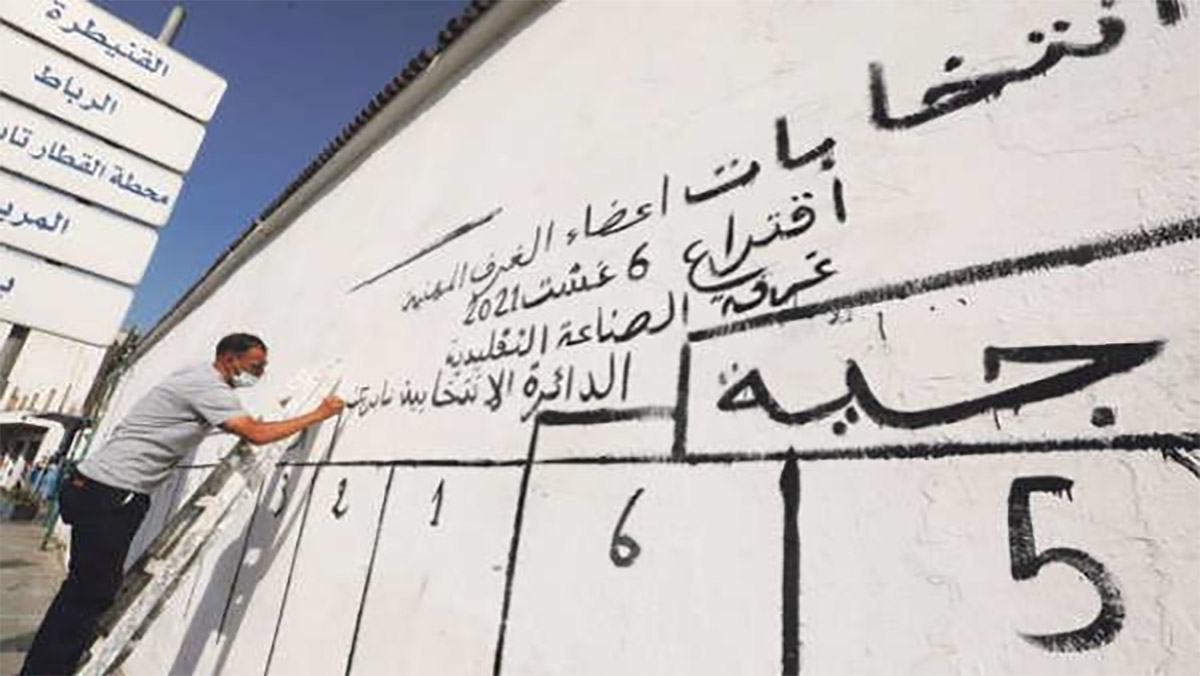 القنيطرة
الرباط
محطة القطار
انتخابات اعضاء الغرف المهنية
اقتراع 6 غشت 2021
غرفة الصناعة التقليدية
الدائرة الانتخابية
5
6
1
2
3